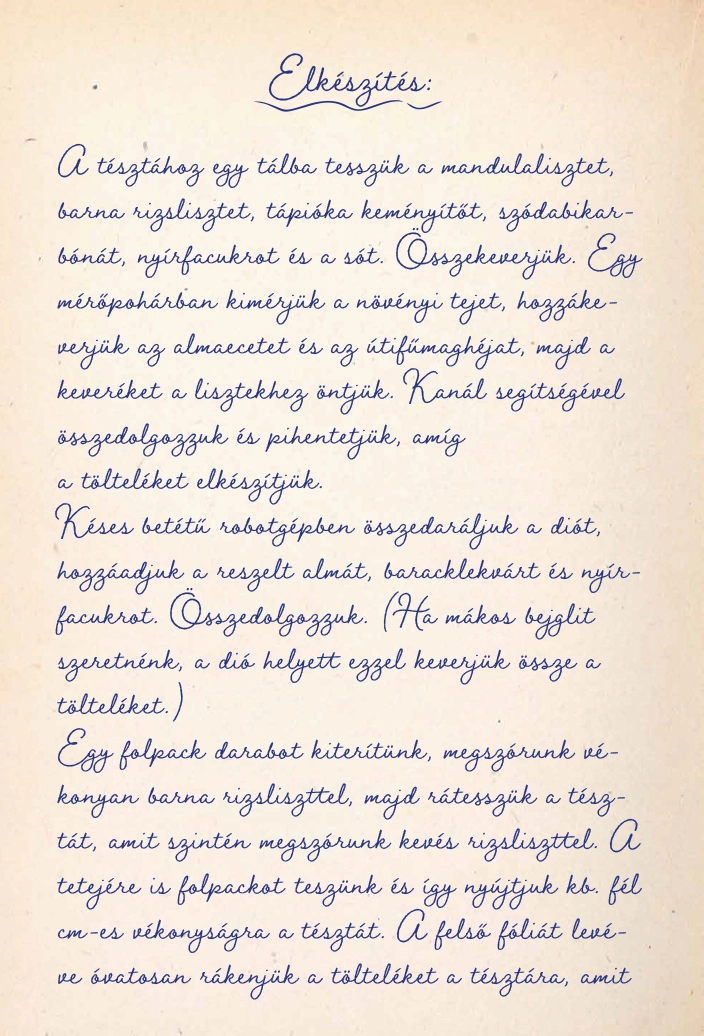 Elkészítés:
A tésztához egy tálba tesszük a mandulalisztet,
barna rizslisztet, tápióka keményítőt, szódabikar-
bónát, nyírfacukrot és a sót. Összekeverjük. Egy
mérőpohárban kimérjük a növényi tejet, hozzáke-
verjük az almaecetet és az útifűmaghéjat, majd a
keveréket a lisztekhez öntjük. Kanál segítségével
összedolgozzuk és pihentetjük, amíg
a tölteléket elkészítjük.
Késes betétű robotgépben összedaráljuk a diót,
hozzáadjuk a reszelt almát, baracklekvárt és nyír-
facukrot. Összedolgozzuk. (Ha mákos bejglit
szeretnénk, a dió helyett ezzel keverjük össze a
tölteléket.)
Egy folpack darabot kiterítünk, megszórunk vé-
konyan barna rizsliszttel, majd rátesszük a tész-
tát, amit szintén megszórunk kevés rizsliszttel. A
tetejére is folpackot teszünk és így nyújtjuk kb. fél
cm-es vékonyságra a tésztát. A felső fóliát levé-
ve óvatosan rákenjük a tölteléket a tésztára, amit